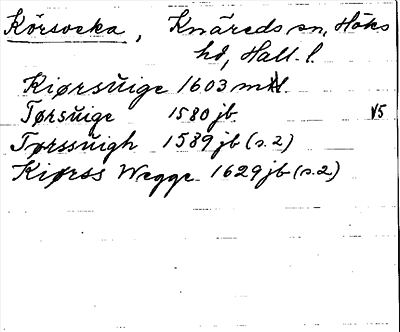 Körsveka, Knäreds sn, Höks
hd, Hall. l.
Kiørsŭige 1603 mtl.
Tørsŭige 1580 jb. V5
Tørssŭigh 1589 jb (s. 2)
Kiørss Wegge 1629 jb (s. 2)